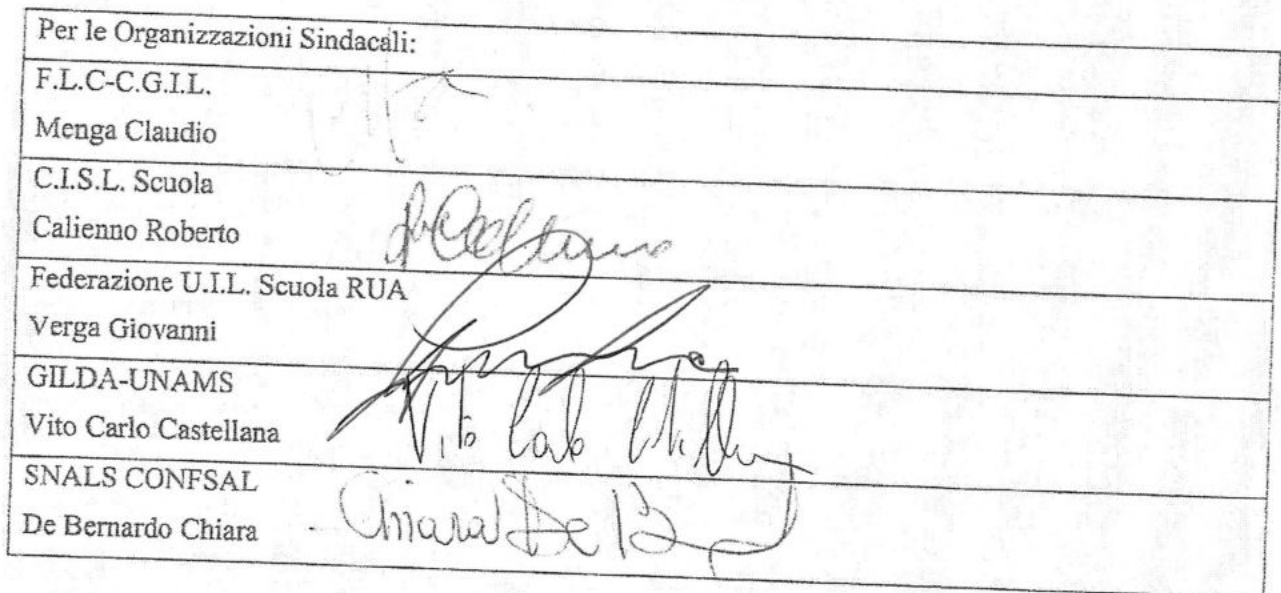 Per le Organizzazioni Sindacali:
F.L.C-C.G.I.L.
Menga Claudio
C.I.S.L. Scuola
Calienno Roberto
Federazione U.I.L. Scuola RUA
Verga Giovanni
GILDA-UNAMS
Vito Carlo Castellana
SNALS CONFSAL
De Bernardo Chiara Chiara De B